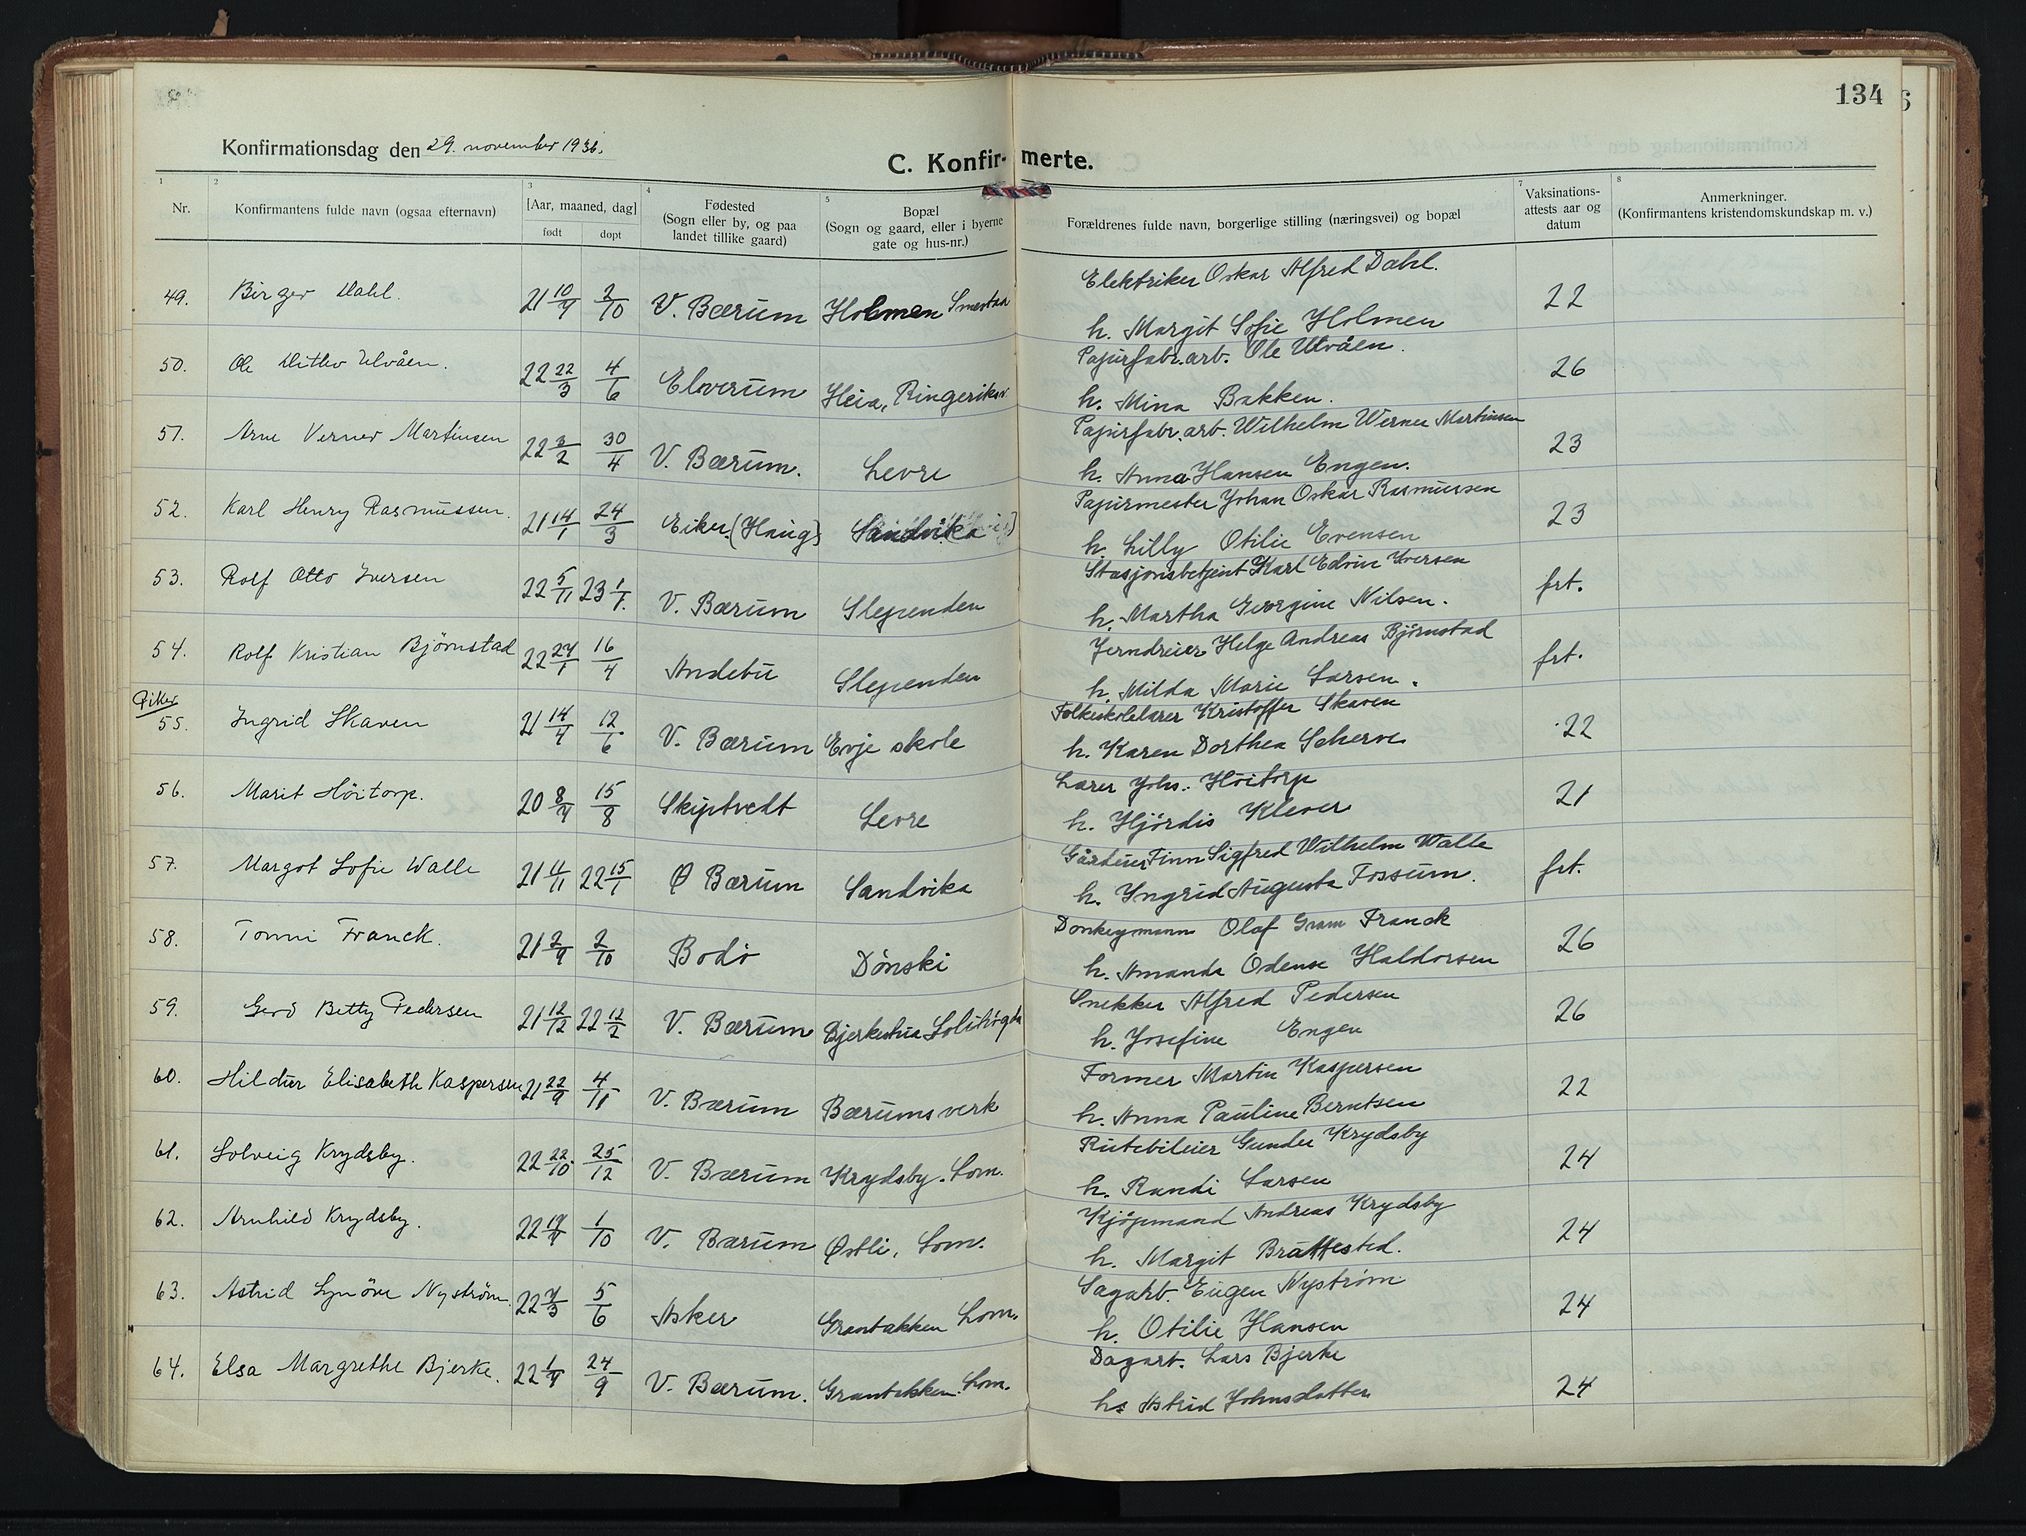 134
Konfirmationsdag den 29. november 1936.
C. Konfirmerte.
1 2 3 4 5 7 8
Nr.
Konfirmantens fulde navn (ogsaa efternavn)
[Aar, maaned, dag]
født døpt
Fødested
(Sogn eller by, og paa
landet tillike gaard)
Bopæl
(Sogn og gaard, eller i byerne
gate og hus-nr.)
Forældrenes fulde navn, borgerlige stilling (næringsvei) og bopæl
Vaksinations-
attests aar og
datum
Anmerkninger.
(Konfirmantens kristendomskundskap m. v.)
49. Birger Dahl. 21 10/9 2/10 V. Bærum Holmen Smestad Elektriker Oskar Alfred Dahl. 22
h. Margit Sofie Holmen
50. Ole Ditlev Ulvåen. 22 22/3 4/6 Elverum Heia, Ringeriksv. Papirfabr.arb. Ole Ulvåen. 26
h. Mina Bakken.
51. Arne Verner Martinsen 22 3/2 30/4 V. Bærum. Levre Papirfabr.arb. Wilhelm Werner Martinsen 23
h. Anna Hansen Engen.
52. Karl Henry Rasmussen. 21 14/1 24/3 Eiker (Haug) Sandvika Papirmester Johan Oskar Rasmussen 23
h. Lilly Otilie Evensen
53. Rolf Otto Iversen 22 5/11 23 1/1. V. Bærum Slependen Stasjonsbetjent Karl Edvin Iversen frt.
h. Martha Georgine Nilsen.
54. Rolf Kristian Bjørnstad 22 24/1 16/4 Andebu Slependen Jerndreier Helge Andreas Bjørnstad frt.
h. Milda Marie Larsen.
Piker
55. Ingrid Skaven 21 14/4 12/6 V. Bærum Evje skole Folkeskolelærer Kristoffer Skaven 22
h. Karen Dorthea Scherve
56. Marit Höitorp. 20 8/4 15/8 Skiptvedt Levre Lærer Johs. Höitorp 21
h. Hjördis Klever
57. Margot Sofie Walle 21 11/11 22 15/1 Ø Bærum Sandvika Gårdeier Finn Sigfred Wilhelm Walle frt.
h. Yngrid Augusta Fossum.
58. Tonni Franck. 21 2/9 2/10 Bodø Dønski Donkeymann Olaf Gram Franck 26
h. Amanda Odense Haldorsen
59. Gerd Betty Pedersen 21 12/12 22 12/2 V. Bærum Bjerkestua Solihögda Snekker Alfred Pedersen 26
h. Josefine Engen
60. Hildur Elisabeth Kaspersen 21 22/9 4/11 V. Bærum Bærums verk Former Martin Kaspersen 22
h. Anna Pauline Berntsen
61. Solveig Krydsby. 22 22/10. 25/12 V. Bærum Krydsby. Lom. Rutebileier Gunder Krydsby 24
h. Randi Larsen
62. Arnhild Krydsby. 22 19/4 1/10 V. Bærum Østli, Lom. Kjøpmand Andreas Krydsby 24
h. Margit Brattested.
63. Astrid Synöve Nyström. 22 4/3 5/6 Asker Grantakken Lom. Sagarb. Eugen Nystrøm 24
h. Otilie Hansen
64. Elsa Margrethe Bjerke. 22 1/4 24/9 V. Bærum. Grantakken. Lom. Dagarb. Lars Bjerke 24
h. Astrid Johnsdatter